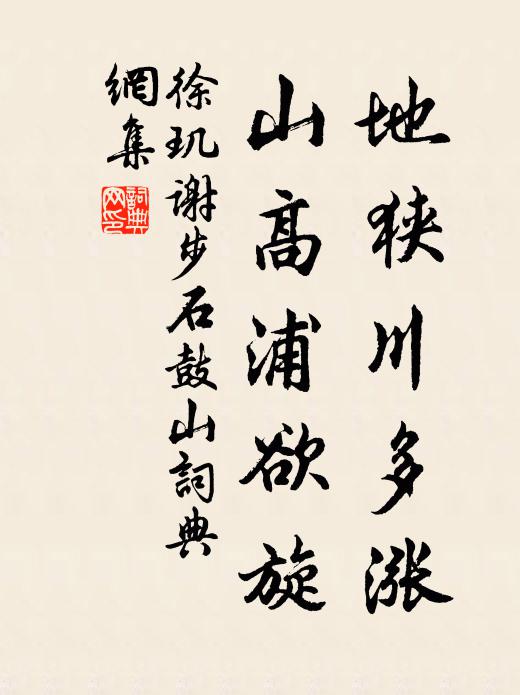 地狹川多漲
山高浦欲旋
徐玑谢步石鼓山詞典
網集
詞典
网印